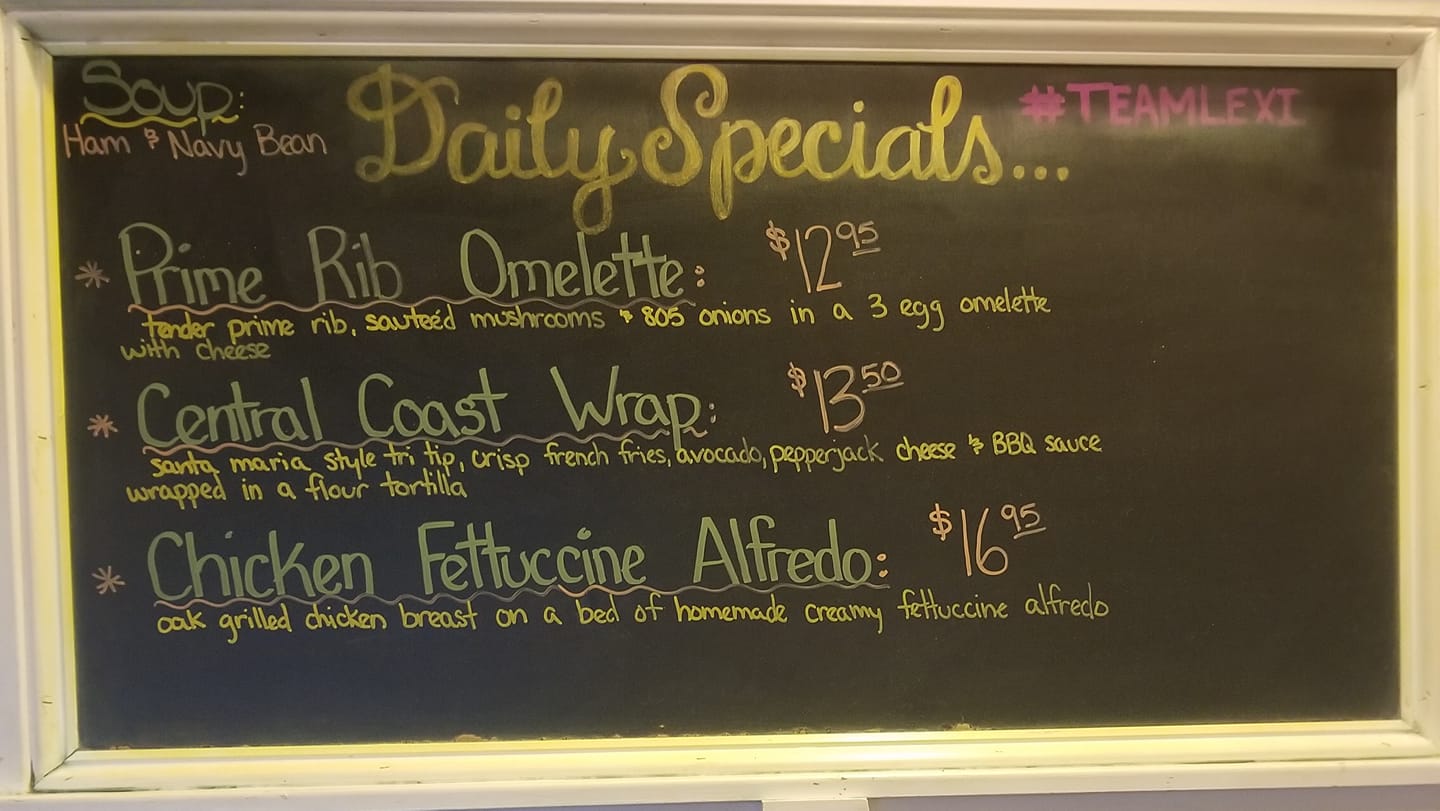 Soup:
Ham & Navy Bean
Daily Specials...
#TEAMLEXI
* Prime Rib Omelette: $12.95
tender prime rib, sauteéd mushrooms & 805 onions in a 3 egg omelette
with cheese
* Central Coast Wrap: $13.50
santa maria style tri tip, crisp french fries, avocado, pepperjack cheese & BBQ sauce
wrapped in a flour tortilla
* Chicken Fettuccine Alfredo: $16.95
oak grilled chicken breast on a bed of homemade creamy fettuccine alfredo